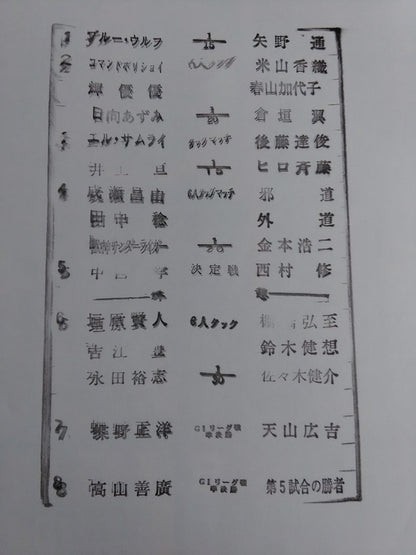 1 ブルー・ウルフ 1/15 矢野 通
2 コマンドボリショイ 米山香織
輝優優 春山加代子
日向あずみ 1/20 倉垣 翼
3 エル・サムライ タッグマッチ 後藤達俊
井上 亘 1/15 ヒロ斉藤
4 成瀬昌由 6人タッグマッチ 邪道
田中 稔 外道
獣神サンダーライガー 1/20 金本浩二
5 中西 学 決定戦 西村 修
6 垣原賢人 6人タッグ 棚橋弘至
吉江 豊 鈴木健想
永田裕志 1/30 佐々木健介
7 蝶野正洋 G1リーグ戦 準決勝 天山広吉
8 高山善廣 G1リーグ戦 準決勝 第5試合の勝者